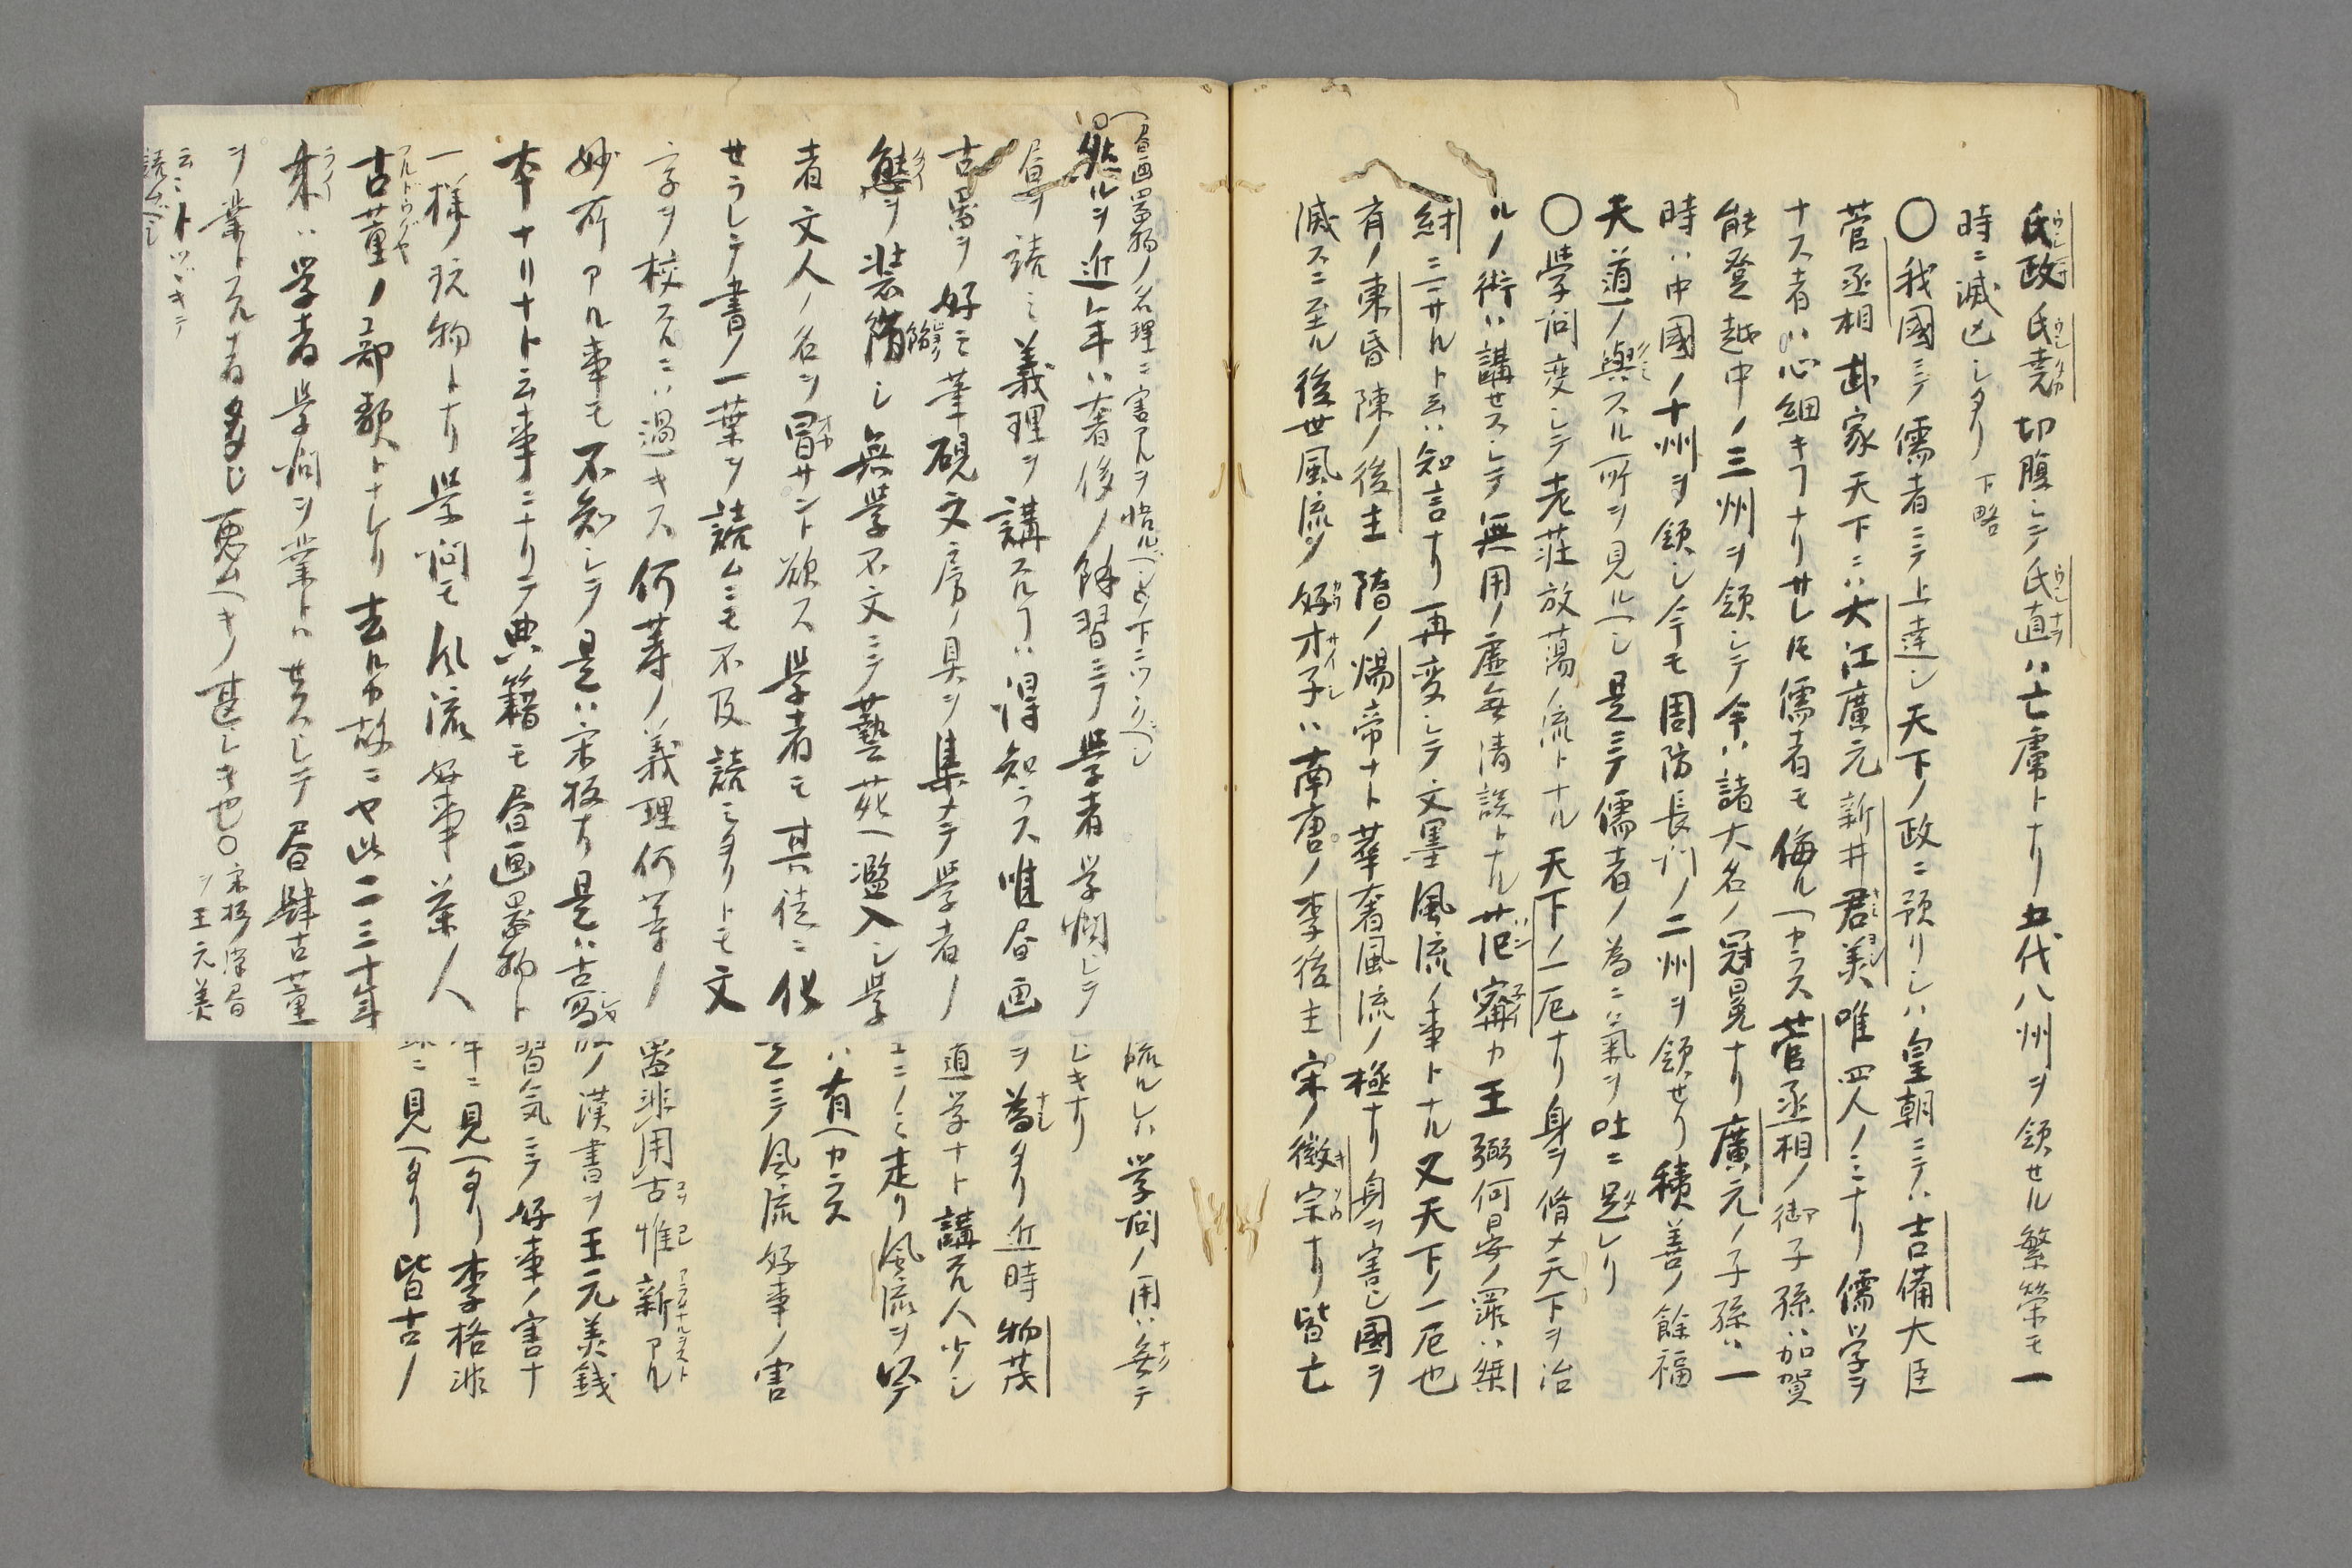 氏政氏堯切腹シテ氏直ハ亡虜トナリ五代八州ヲ領セル繁榮モ一
時ニ滅亡シタリ下略
〇我國ニテ儒者ニテ上達シ天下ノ政ニ預リシハ皇朝ニテハ吉備大臣
菅丞相武家天下ニハ大江廣元新井君美唯四人ノミナリ儒學ヲ
ナス者ハ心細キヿナリサレ𪜈儒者モ侮ルヘカラス菅丞相ノ御子孫ハ加賀
能登越中ノ三州ヲ領シテ今ハ諸大名ノ冠冕ナリ廣元ノ子孫ハ一
時ハ中國ノ十州ヲ領シ今モ周防長门ノ二州ヲ領セリ積善ノ餘福
天道ノ與スル所ヲ見ルヘシ是ニテ儒者ノ為ニ氣ヲ吐ニ足レリ
〇學问変シテ老荘放蕩ノ流トナル天下ノ一厄ナリ身ヲ脩メ天下ヲ治
ルノ術ハ講セスシテ無用ノ虚無清談トナル范寗カ王弼何晏ノ罪ハ桀
紂ニ二サルト云ハ知言ナリ再変シテ文墨風流ノ事トナル又天下ノ一厄也
有ノ東昏陳ノ後主隋ノ煬帝ナト華奢風流ノ極ナリ身ヲ害シ國ヲ
滅スニ至ル後世風流ヲ好才子ハ南唐ノ李後主宋ノ徽宗ナリ皆亡
流ルレハ学问ノ用ハ無テ
シキナリ
ヲ為タリ近時物茂
道学ナト講スル人少シ
ニノミ走リ風流ヲ以テ
ハ有ヘカラス
是ニテ風流好事ノ害
器非用古惟新アル
ノ漢書ヲ王元美銭
習気ニテ好事ノ害ナ
ニ見ヘタリ李格非
ニ見ヘタリ皆古ノ
昼画噐物ノ名理ニ害アルヲ悟ルベシト下ニツヾクベシ
〇然ルヲ近年ハ奢侈ノ餘習ニテ學者学问シテ
昼ヲ読ミ義理ヲ講スルヿハ得知ラス唯昼画
古噐ヲ好ミ筆硯文房ノ具ヲ集メテ学者ノ
態ヲ装飾シ無學不文ニテ藝苑ヘ濫入シ学
者文人ノ名ヲ冒サント欲ス學者モ其徒ニ化
セラレテ書ノ一葉ヲ読ムニモ不及読ミタリトモ文
字ヲ校スルニハ過キス何等ノ義理何等ノ
妙所アル事モ不知シテ是ハ宋板ナリ是ハ古寫
本ナリナト云事ニナリテ典籍モ昼画噐物ト
一様ノ玩物トナリ学问モ风流好事ノ業人
古董ノ部類トナレリ去ルカ故ニヤ此二三十年
来ハ学者学问ヲ業トハセスシテ昼肆古董
ヲ業トスル者多シ悪ムヘキノ甚シキ也〇宋板漢昼
ヲ王元美
云ニトツヾキテ
読ムベシ